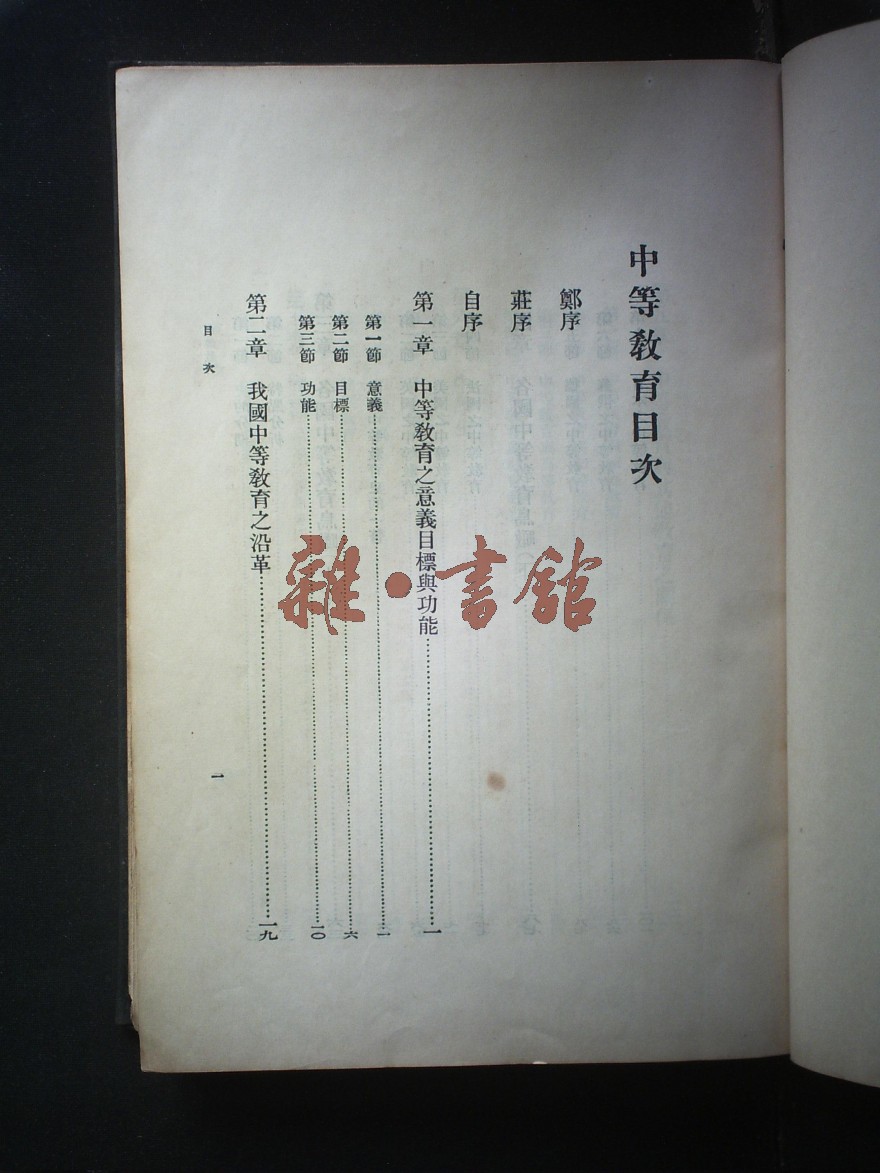 中等敎育目次
鄭序
莊序
自序
第一章　中等敎育之意義目標與功能……一
第一節　意義……一
第二節　目標……六
第三節　功能……一〇
第二章　我國中等敎育之沿革……一九
目次
一
雜·書館